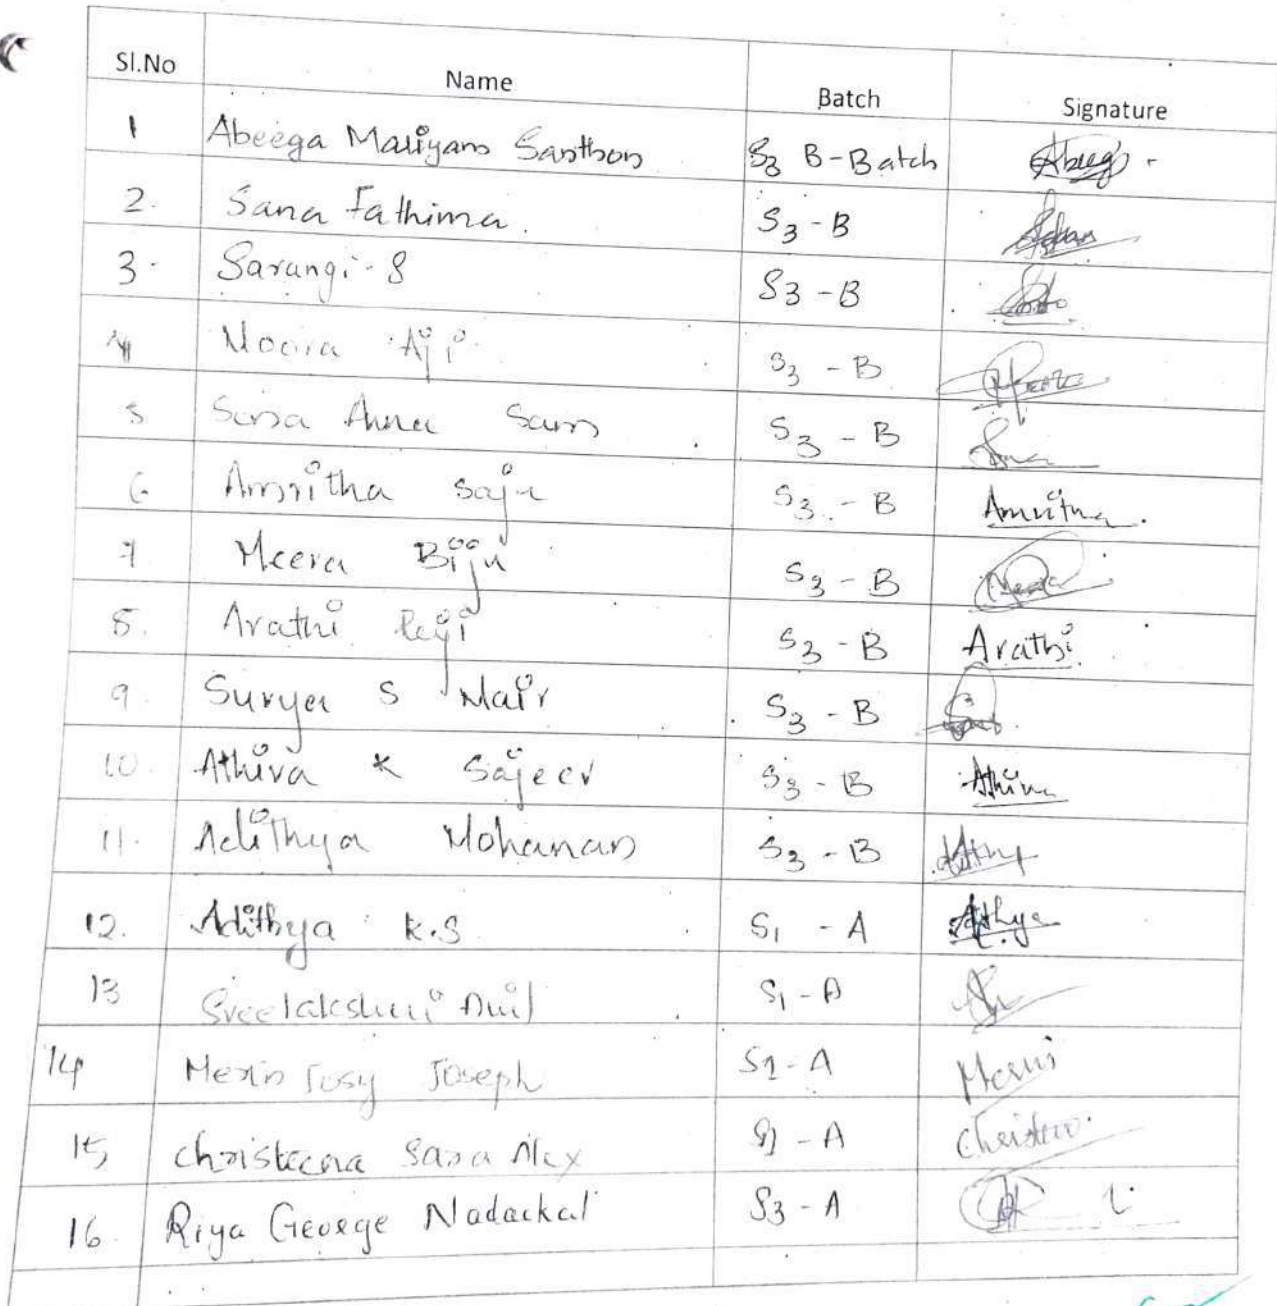 Sl.No Name Batch Signature
1 Abeega Mariyam Santhosh S3 B-Batch Abeega
2. Sana Fathima. S3 - B
3. Sarangi. S S3 - B
4 Aji S3 - B
5 Sona Anna Sam S3 - B
6 Amritha Saji S3 - B Amritha.
7 Meera Biju S3 - B Meera
8. Arathi Reji S3 - B Arathi
9. Surya S Nair S3 - B
10. Athira K Sajeev S3 - B Athira
11. Adithya Mohanan S3 - B
12. Adithya K.S S1 - A
13 Sreelakshmi Anil S1 - A
14 Merin Josy Joseph S1 - A Merin
15 Christeena Sara Alex S1 - A
16 Riya George Nadackal S3 - A